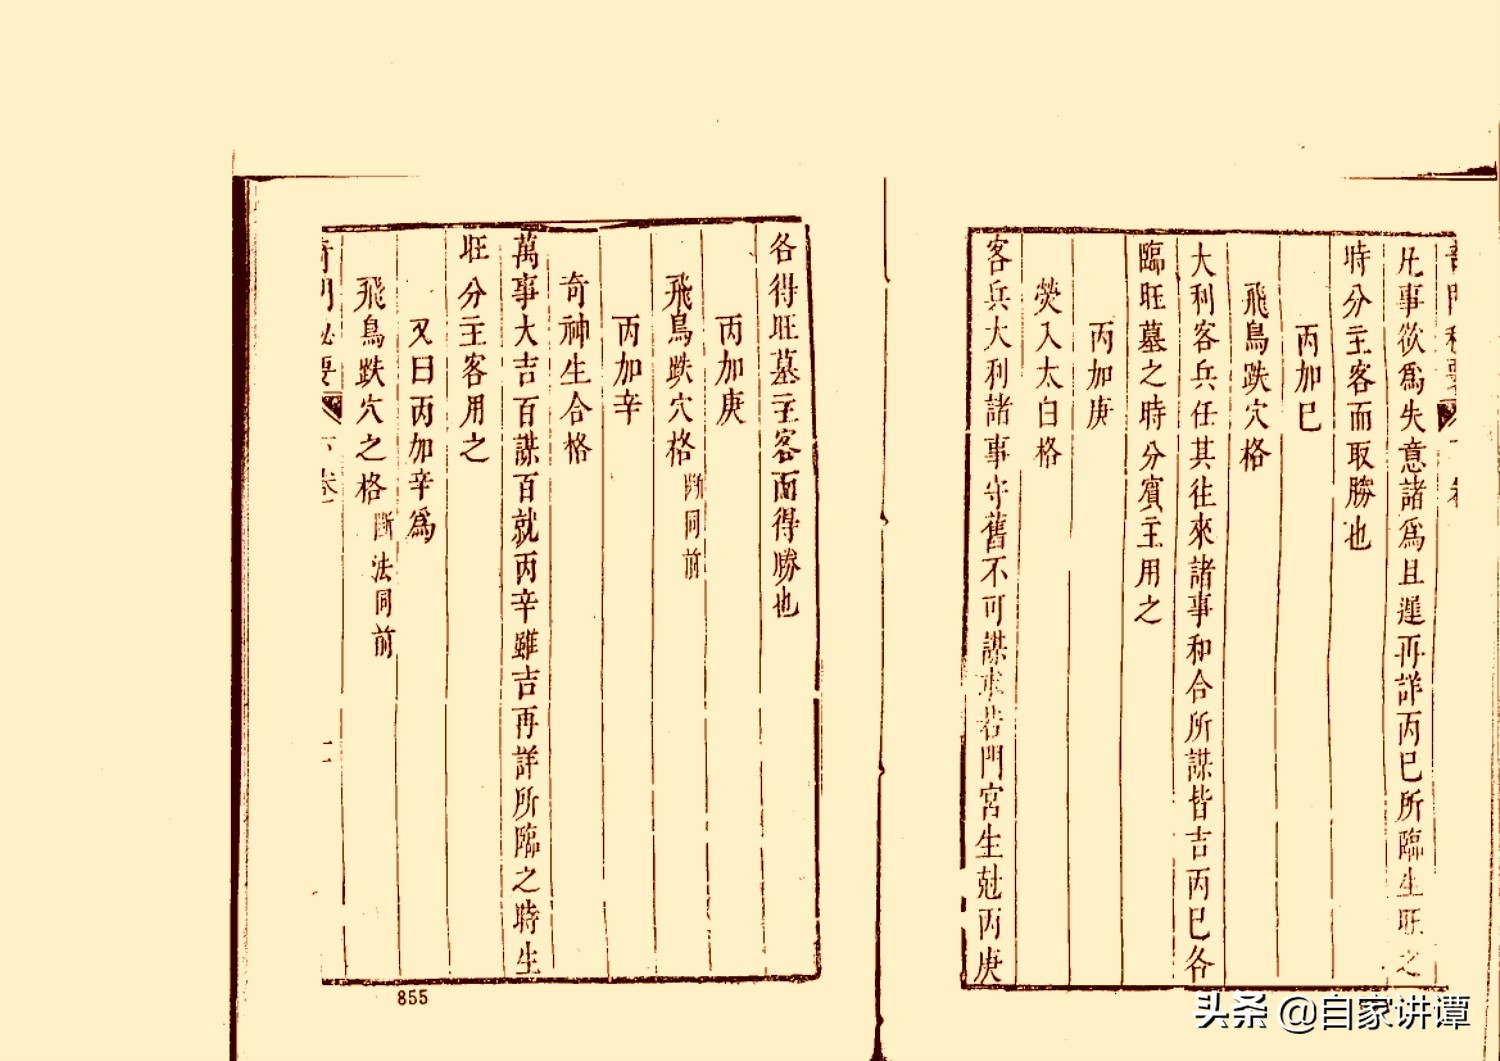 凡事欲爲失意諸爲且遲再詳丙巳所臨生旺之
時分主客而取勝也
丙加巳
飛鳥跌穴格
大利客兵任其往來諸事和合所謀皆吉丙巳各
臨旺墓之時分賓主用之
丙加庚
熒入太白格
客兵大利諸事守舊不可謀求若門宮生尅丙庚
各得旺墓主客而得勝也
丙加庚
飛鳥跌穴格斷同前
丙加辛
奇神生合格
萬事大吉百謀百就丙辛雖吉再詳所臨之時生
旺分主客用之
又曰丙加辛爲
飛鳥跌穴之格斷法同前
奇門祕要 下卷 二
855
头条 @自家讲谭